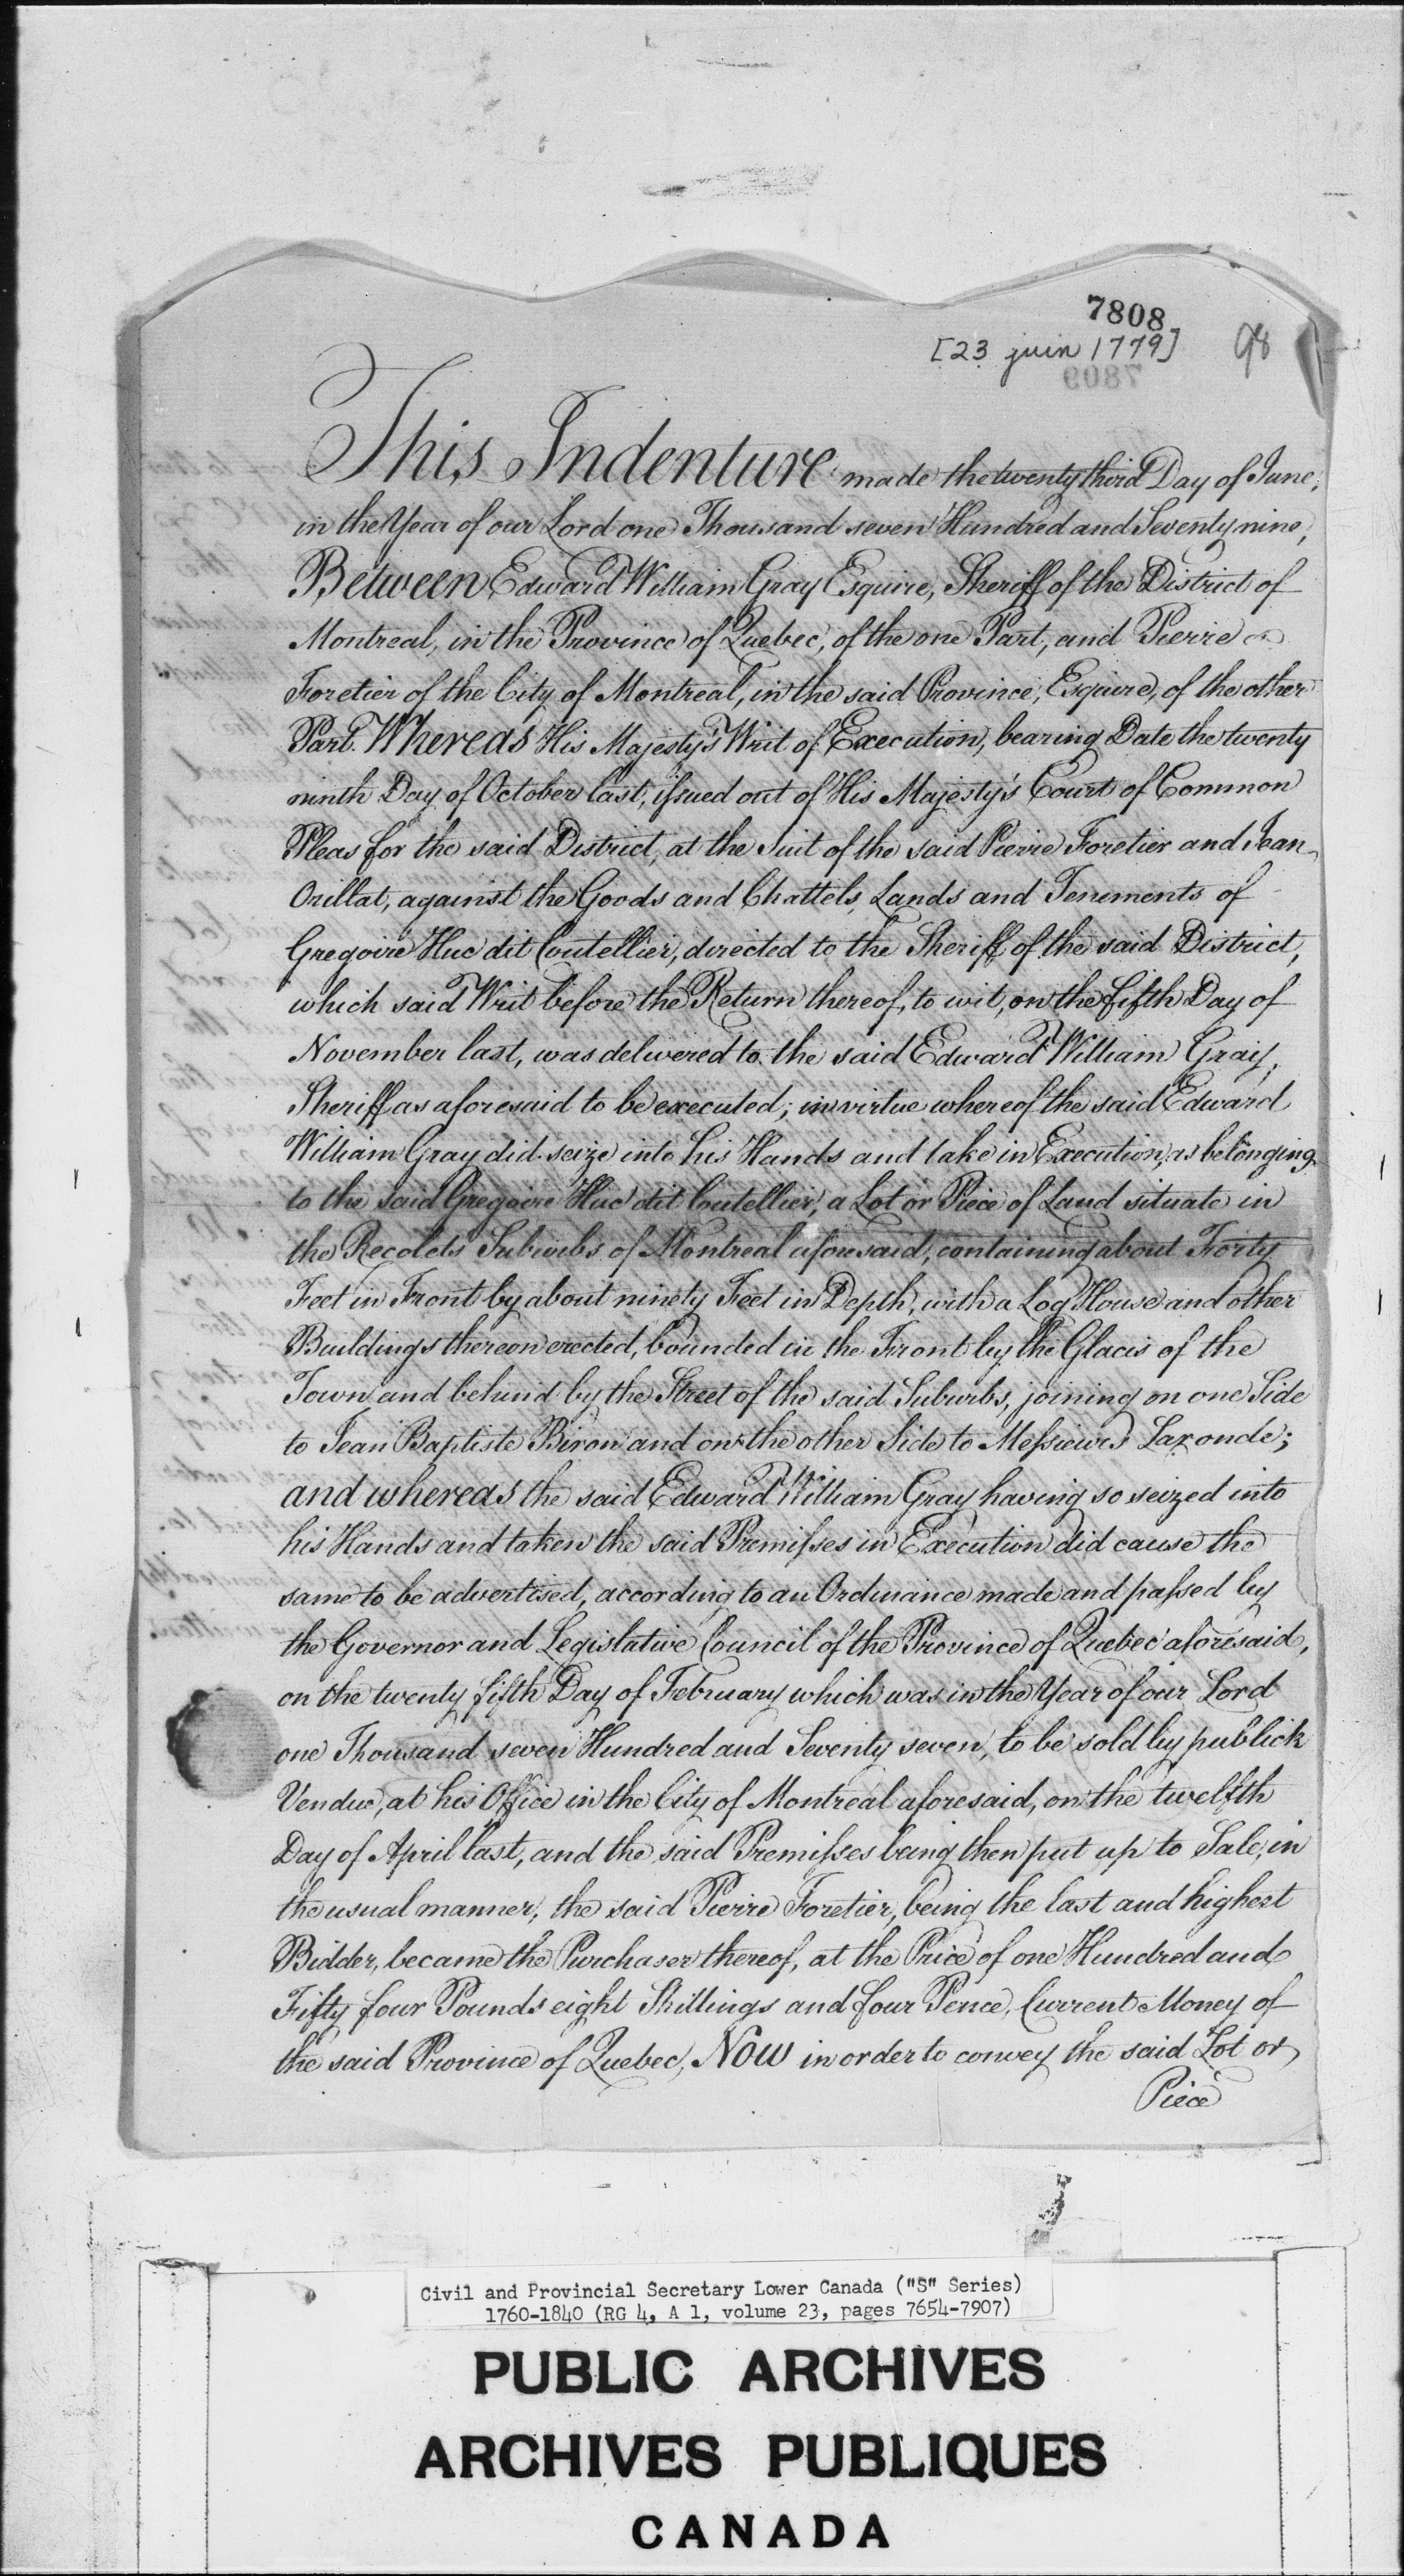 7808
[23 juin 1779]
98
7809
This Indenture made the twenty third Day of June,
in the Year of our Lord one Thousand seven Hundred and Seventy nine,
Between Edward William Gray Esquire, Sheriff of the District of
Montreal, in the Province of Quebec, of the one Part, and Pierre
Foretier of the City of Montreal, in the said Province, Esquire, of the other
Part. Whereas His Majesty's Writ of Execution, bearing Date the twenty
ninth Day of October last, issued out of His Majesty's Court of Common
Pleas for the said District, at the Suit of the said Pierre Foretier and Jean
Orillat, against the Goods and Chattels, Lands and Tenements of
Gregoire Huc dit Coutellier, directed to the Sheriff of the said District,
which said Writ before the Return thereof, to wit, on the fifth Day of
November last, was delivered to the said Edward William Gray,
Sheriff as aforesaid to be executed; in virtue whereof the said Edward
William Gray did seize into his Hands and take in Execution, as belonging
to the said Gregoire Huc dit Coutellier, a Lot or Piece of Land situate in
the Recolets Suburbs of Montreal aforesaid, containing about Forty
Feet in Front by about ninety Feet in Depth, with a Log House and other
Buildings thereon erected, bounded in the Front by the Glacis of the
Town and behind by the Street of the said Suburbs, joining on one Side
to Jean Baptiste Biron and on the other Side to Messieurs Laronde;
and whereas the said Edward William Gray having so seized into
his Hands and taken the said Premisses in Execution did cause the
same to be advertised, according to an Ordinance made and passed by
the Governor and Legislative Council of the Province of Quebec aforesaid,
on the twenty fifth Day of February which was in the Year of our Lord
one Thousand seven Hundred and Seventy seven, to be sold by publick
Vendue, at his Office in the City of Montreal aforesaid, on the twelfth
Day of April last, and the said Premisses being then put up to Sale, in
the usual manner, the said Pierre Foretier, being the last and highest
Bidder, became the Purchaser thereof, at the Price of one Hundred and
Fifty four Pounds eight Shillings and four Pence, Current Money of
the said Province of Quebec, Now in order to convey the said Lot or
Piece
Civil and Provincial Secretary Lower Canada ("S" Series)
1760-1840 (RG 4, A 1, volume 23, pages 7654-7907)
PUBLIC ARCHIVES
ARCHIVES PUBLIQUES
CANADA